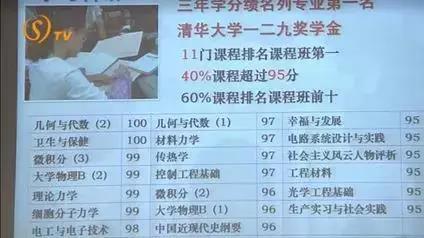 TV
三年学分绩名列专业第一名
清华大学一二九奖学金
11门课程排名课程班第一
40%课程超过95分
60%课程排名课程班前十
几何与代数（2） 100 几何与代数（1） 97 幸福与发展 95
卫生与保健 100 材料力学 97 电路系统设计与实践 95
微积分（3） 99 传热学 97 社会主义风云人物评析 95
大学物理B（2） 99 控制工程基础 97 工程材料 95
理论力学 99 微积分（2） 96 光学工程基础 95
细胞分子力学 99 大学物理B（1） 96 生产实习与社会实践 95
电工与电子技术 98 中国近现代史纲要 96